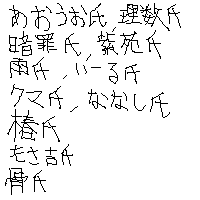 めおうお氏、理数氏
暗罪氏、紫苑氏
雨氏、いーる氏
クマ氏、ななし氏
椿氏
毛さ吉氏
骨氏